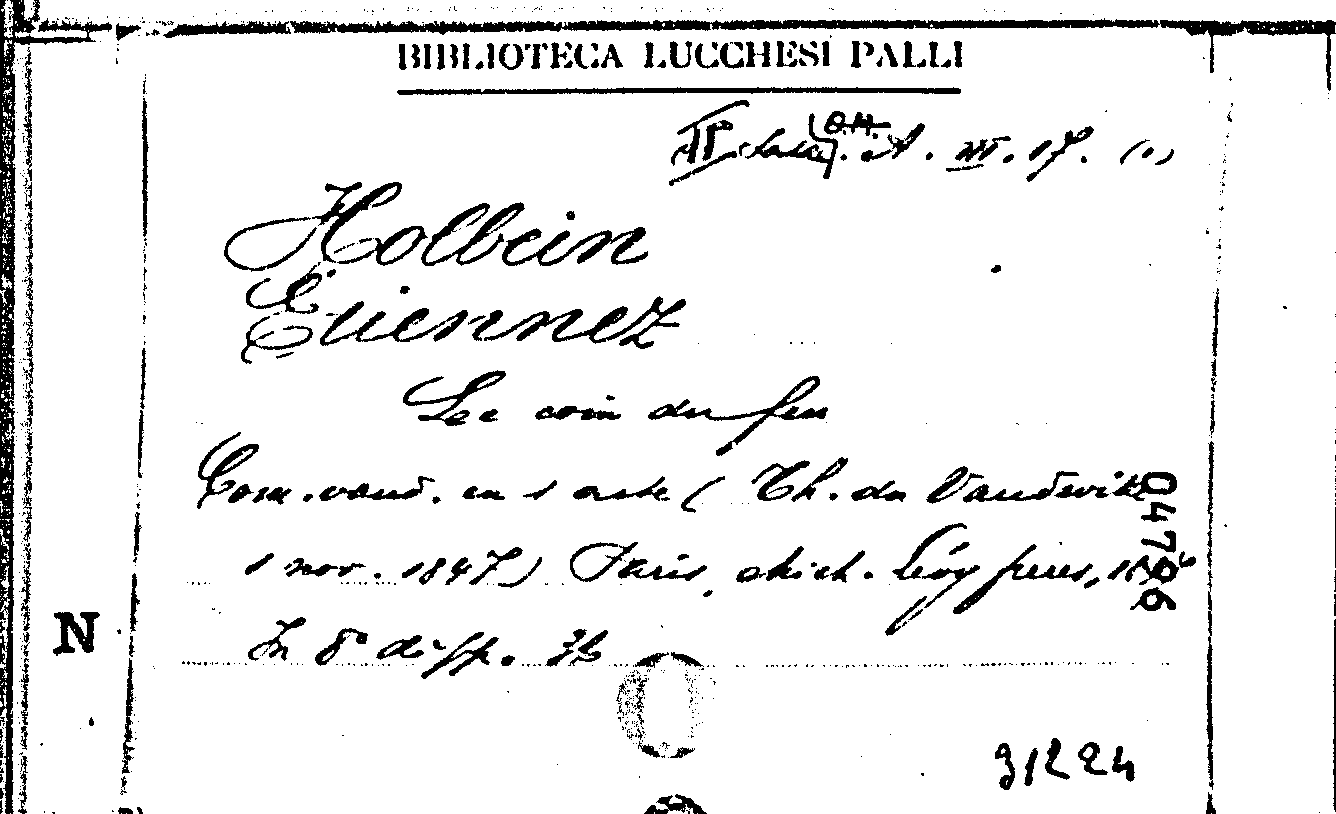 BIBLIOTECA LUCCHESI PALLI
II Sala A. III. 17. (1)
Holbein
Etiennez
Le coin du feu
Com. vaud. en 1 acte ( Th. du Vaudeville
1 nov. 1847) Paris, Mich. Lévy frères,
In 8° di pp. 36
N
04796
31224